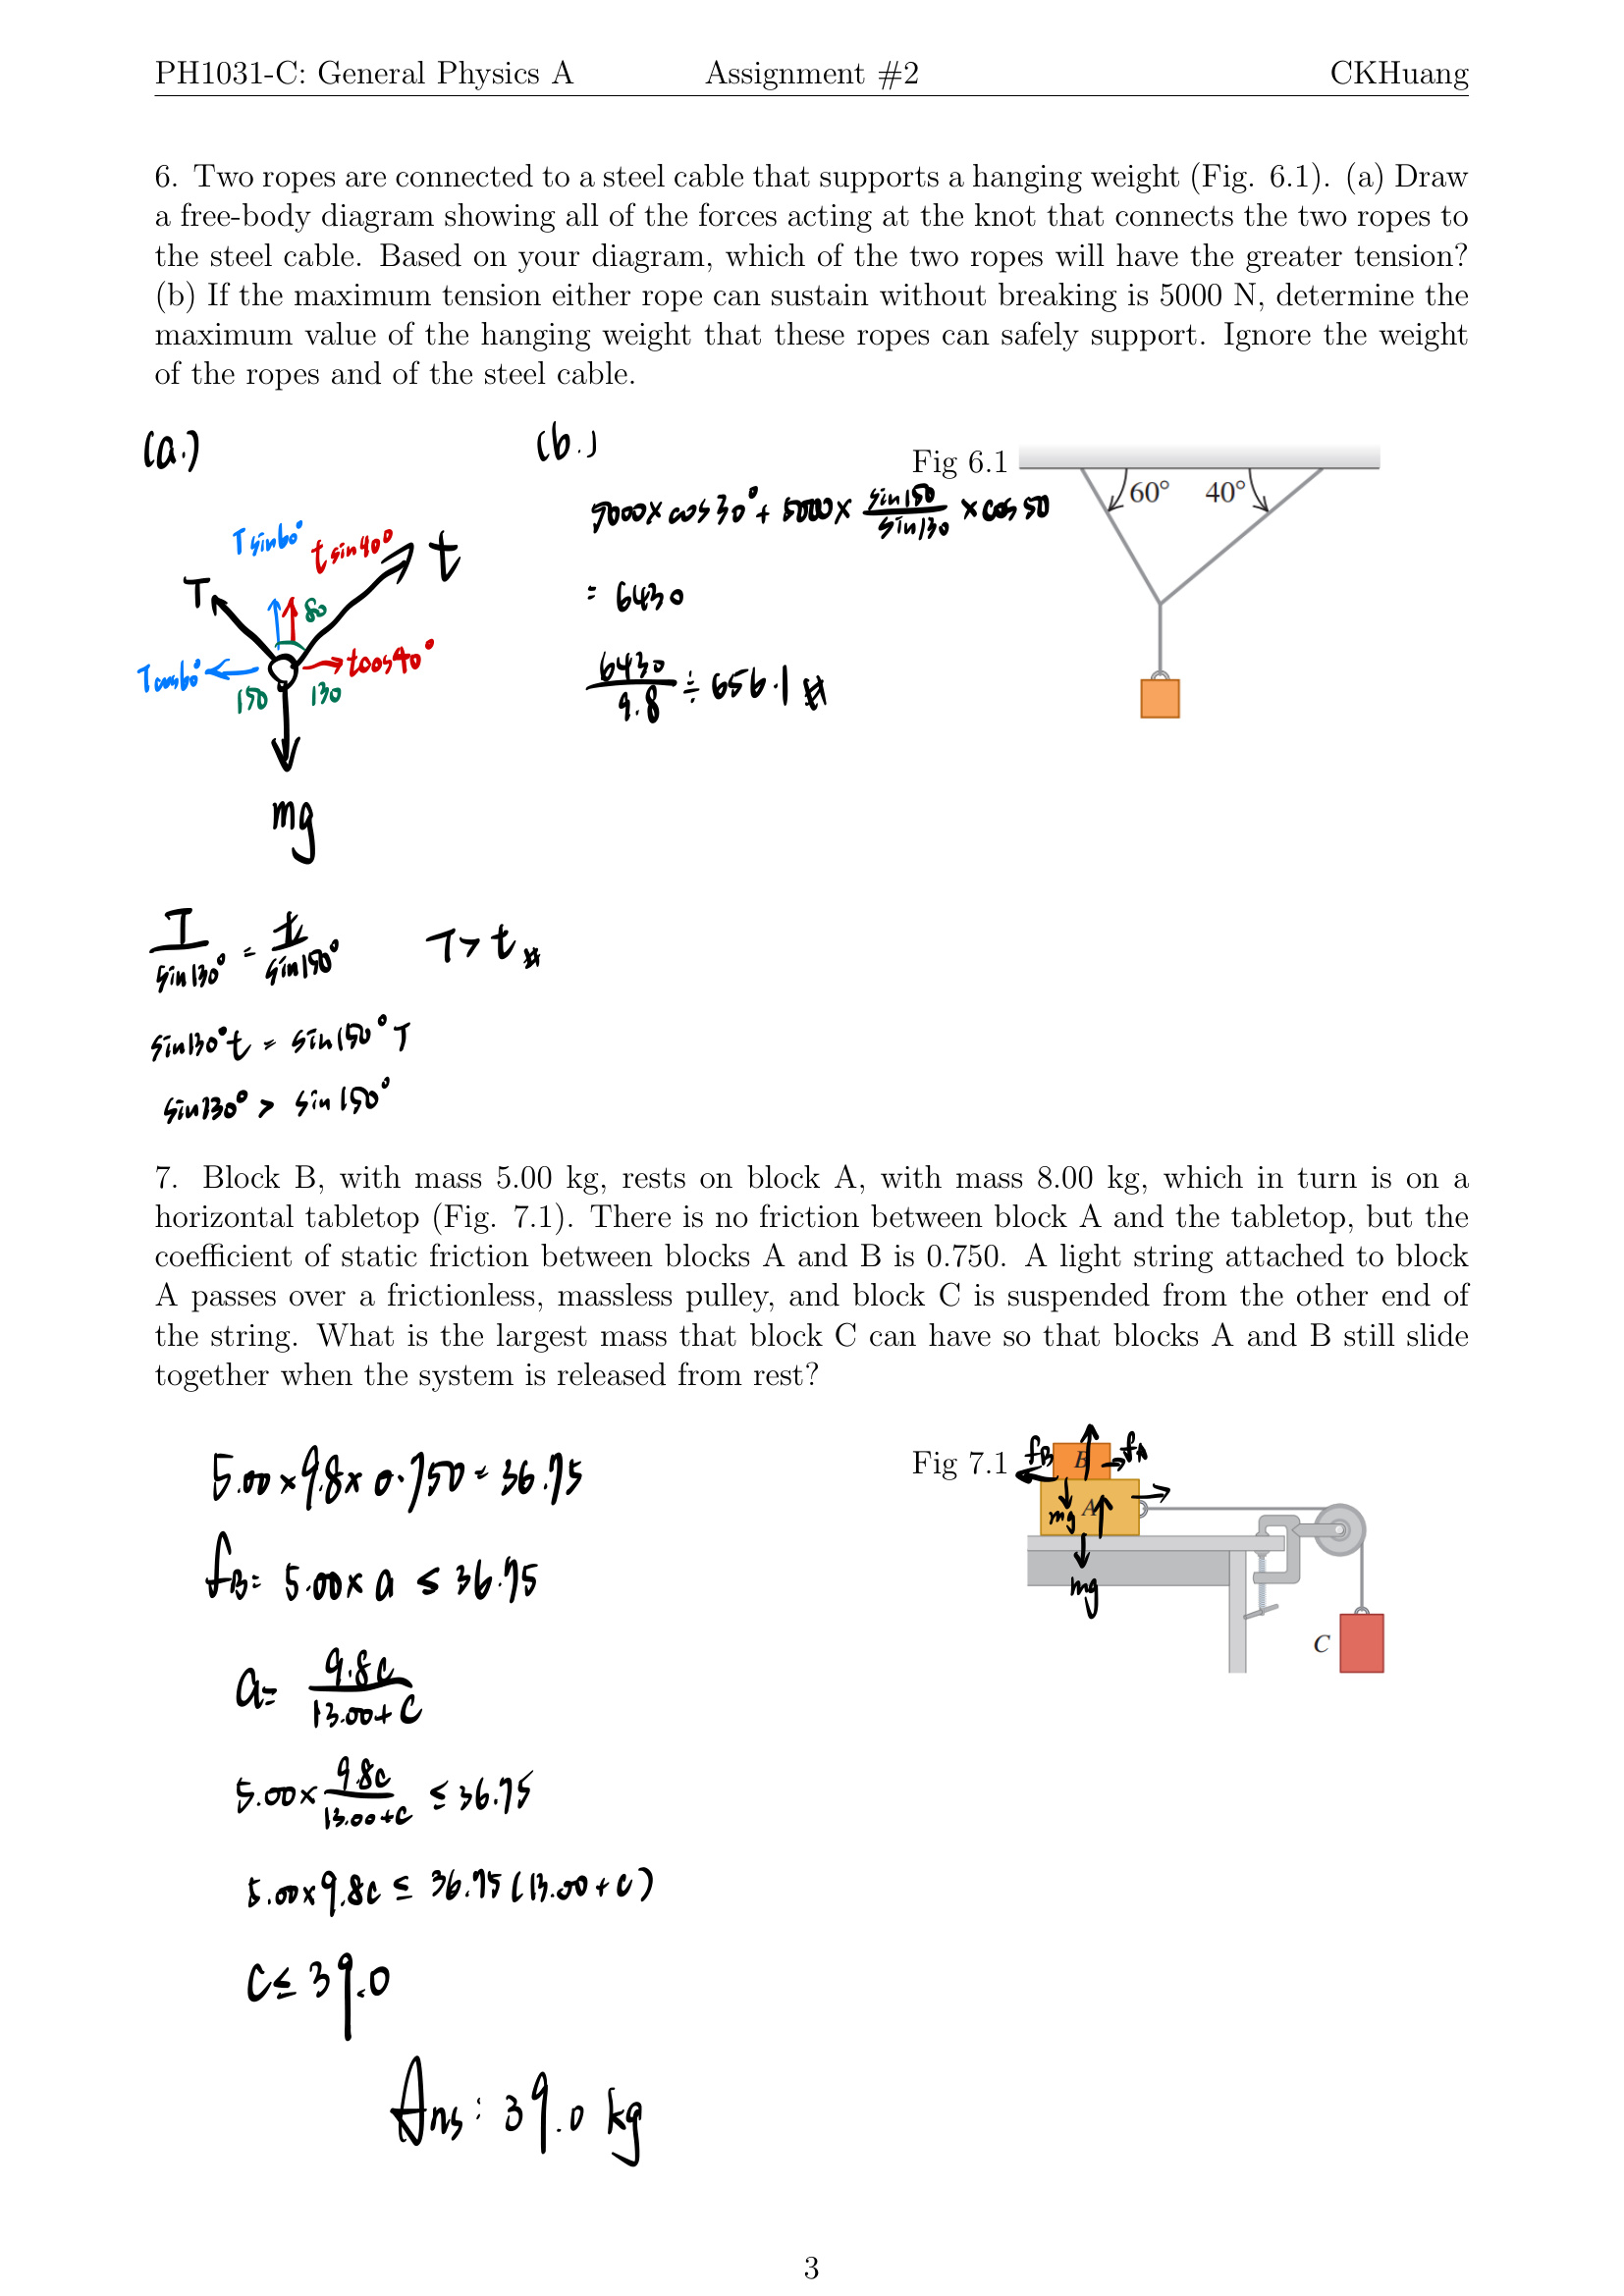 PH1031-C: General Physics A Assignment #2 CKHuang
6. Two ropes are connected to a steel cable that supports a hanging weight (Fig. 6.1). (a) Draw
a free-body diagram showing all of the forces acting at the knot that connects the two ropes to
the steel cable. Based on your diagram, which of the two ropes will have the greater tension?
(b) If the maximum tension either rope can sustain without breaking is 5000 N, determine the
maximum value of the hanging weight that these ropes can safely support. Ignore the weight
of the ropes and of the steel cable.
(a.)
T sin60°
t sin40°
t
T
80
T cos60°
t cos40°
150
130
mg
T/sin130° = t/sin150°
T > t #
sin130° t = sin150° T
sin130° > sin150°
(b.)
5000 × cos30° + 5000 × sin150/sin130 × cos50
= 6430
6430/9.8 ≑ 656.1 #
Fig 6.1
60° 40°
7. Block B, with mass 5.00 kg, rests on block A, with mass 8.00 kg, which in turn is on a
horizontal tabletop (Fig. 7.1). There is no friction between block A and the tabletop, but the
coefficient of static friction between blocks A and B is 0.750. A light string attached to block
A passes over a frictionless, massless pulley, and block C is suspended from the other end of
the string. What is the largest mass that block C can have so that blocks A and B still slide
together when the system is released from rest?
5.00 × 9.8 × 0.750 = 36.75
fB = 5.00 × a ≤ 36.75
a = 9.8c/13.00+C
5.00 × 9.8c/13.00+c ≤ 36.75
5.00 × 9.8c ≤ 36.75 (13.00 + c)
C ≤ 39.0
Ans: 39.0 kg
Fig 7.1
fB
B
fA
mg
A
mg
C
3